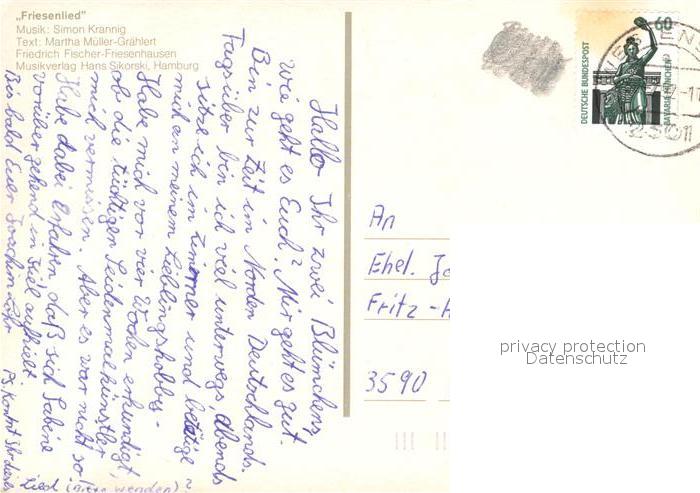 „Friesenlied"
Musik: Simon Krannig
Text: Martha Müller-Grählert
Friedrich Fischer-Friesenhausen
Musikverlag Hans Sikorski, Hamburg
Hallo Ihr zwei Blümchens,
wie geht es Euch? Mir geht es gut.
Bin zur Zeit im Norden Deutschlands.
Tagsüber bin ich viel unterwegs, abends
sitze ich im Zimmer und betätige
mich an meinem Lieblingshobby.
Habe mich vor vier Wochen erkundigt,
ob die tüchtigen Seidenmalkünstler
mich vermissen. Aber es war nicht so!
Habe dabei erfahren, daß sich Sabine
vorübergehend in Kiel aufhielt.
Bis bald Euer Joachim
PS. Kennt Ihr dieses
Lied (bitte wenden)?
60
DEUTSCHE BUNDESPOST
BAVARIA MÜNCHEN
An
Ehel.
Fritz -
3590
privacy protection
Datenschutz